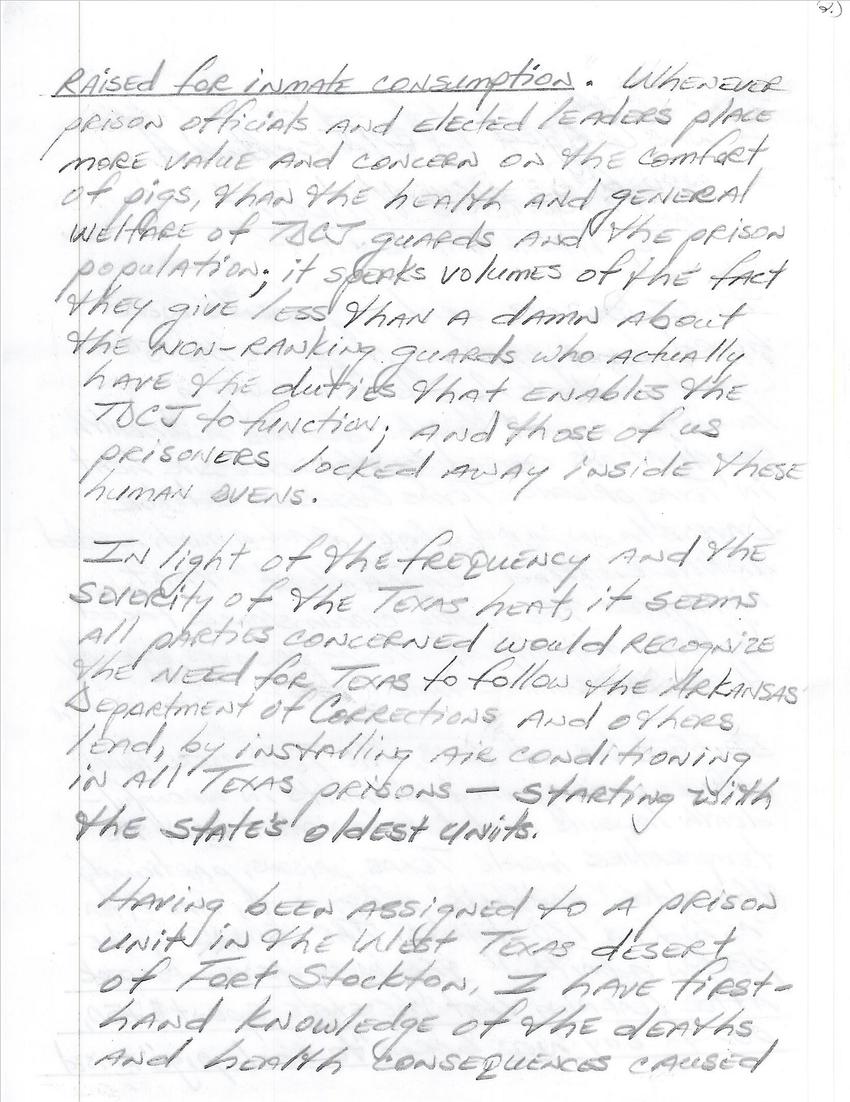 2.)
RAISED for inmate consumption. Whenever
prison officials and elected leaders place
more value and concern on the comfort
of pigs, than the health and general
welfare of TDCJ guards and the prison
population; it speaks volumes of the fact
they give less than a damn about
the non-ranking guards who actually
have the duties that enables the
TDCJ to function; and those of us
prisoners locked away inside these
human ovens.
In light of the frequency and the
severity of the Texas heat, it seems
all parties concerned would recognize
the need for Texas to follow the Arkansas
Department of Corrections and others
lead, by installing air conditioning
in all Texas prisons — starting with
the state's oldest units.
Having been assigned to a prison
unit in the West Texas desert
of Fort Stockton, I have first-
hand knowledge of the deaths
and health consequences caused